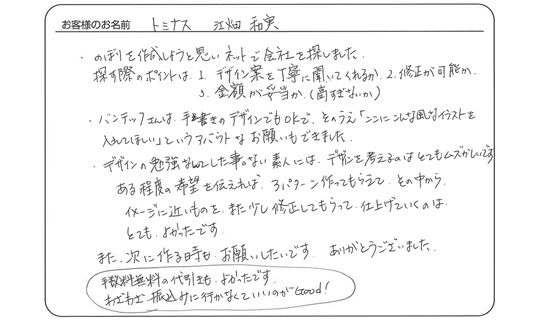 お客様のお名前 トミナス 江畑 和実
・のぼりを作成しようと思いネットで会社を探しました。
探す際のポイントは、1. デザイン案を丁寧に聞いてくれるか、2. 修正が可能か、
3. 金額が妥当か、(高すぎないか)
・バンテックさんは、手書きのデザインでもOKで、そのうえ「ここにこんな風なイラストを
入れてほしい」というアバウトなお願いもできました。
・デザインの勉強なんてした事のない素人には、デザインを考えるのはとてもムズかしいです
ある程度の希望を伝えれば、3パターン作ってもらえて、その中から
イメージに近いものを、また少し修正してもらって、仕上げていくのは
とても、よかったです。
また、次に作る時も、お願いしたいです。 ありがとうございました。
手数料無料の代引きも、よかったです。
わざわざ振込みに行かなくていいのがGood!